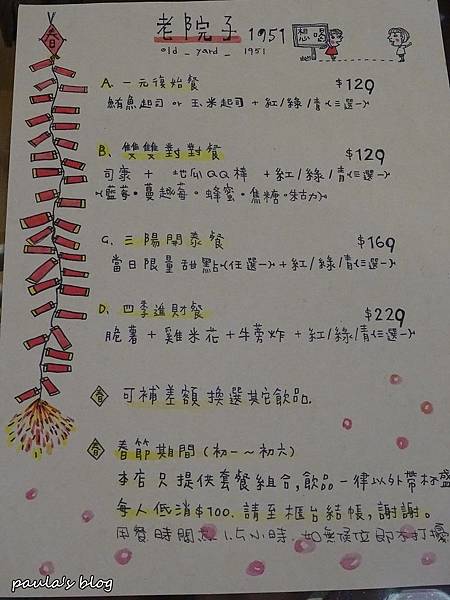 春
老院子 1951
old _ yard _ 1951
想喝
A. 一元復始餐 $129
鮪魚起司 or 玉米起司 + 紅/綠/青(三選一)
B. 雙雙對對餐 $129
司康 + 地瓜QQ棒 + 紅/綠/青(三選一)
(藍莓。蔓越莓。蜂蜜。焦糖。朱古力)
C. 三陽開泰餐 $169
當日限量甜點(任選一) + 紅/綠/青(三選一)
D. 四季進財餐 $229
脆薯 + 雞米花 + 牛蒡炸 + 紅/綠/青(三選一)
春 可補差額換選其它飲品.
春 春節期間(初一~初六)
本店只提供套餐組合,飲品一律以外帶杯盛
每人低消$100. 請至櫃台結帳,謝謝。
用餐時間 1.5小時. 如無候位即不打擾
paula's blog